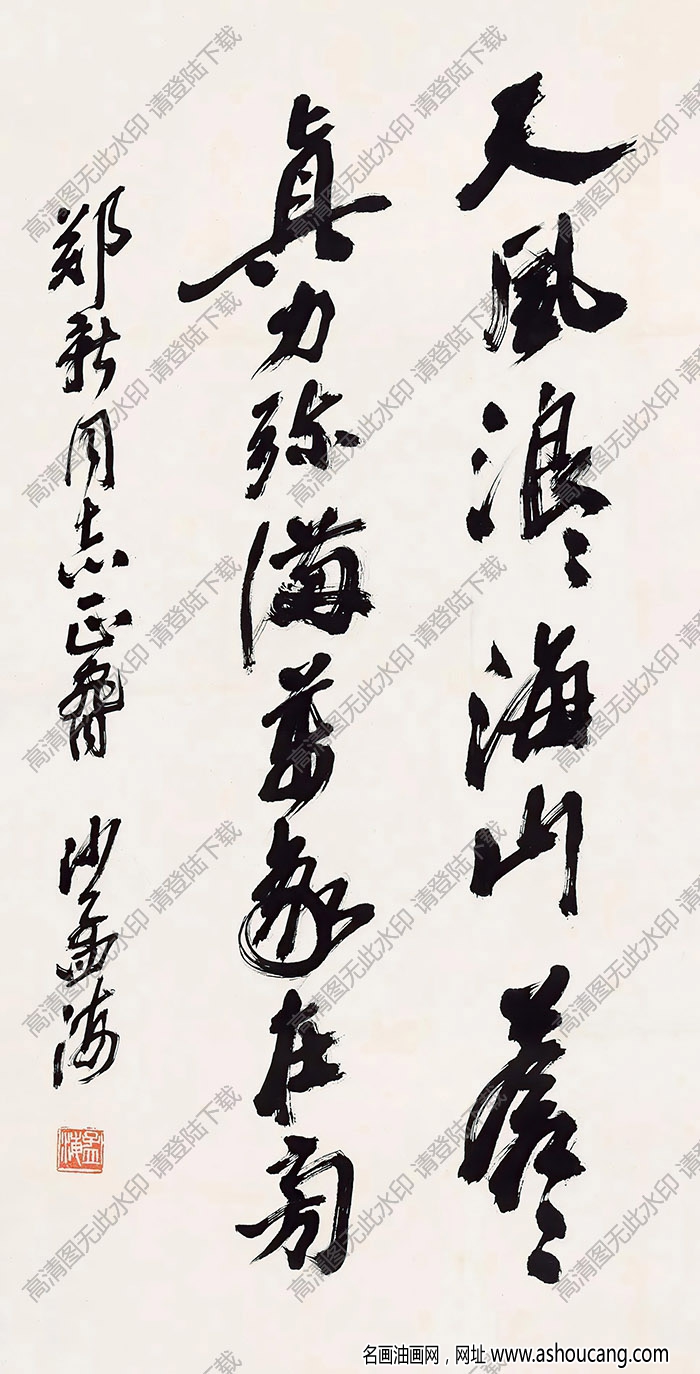 天風浪々海山蒼々
真力弥滿萬象在旁
郑新同志正 沙孟海
孟海
高清图无此水印 请登陆下载
名画油画网，网址 www.ashoucang.com